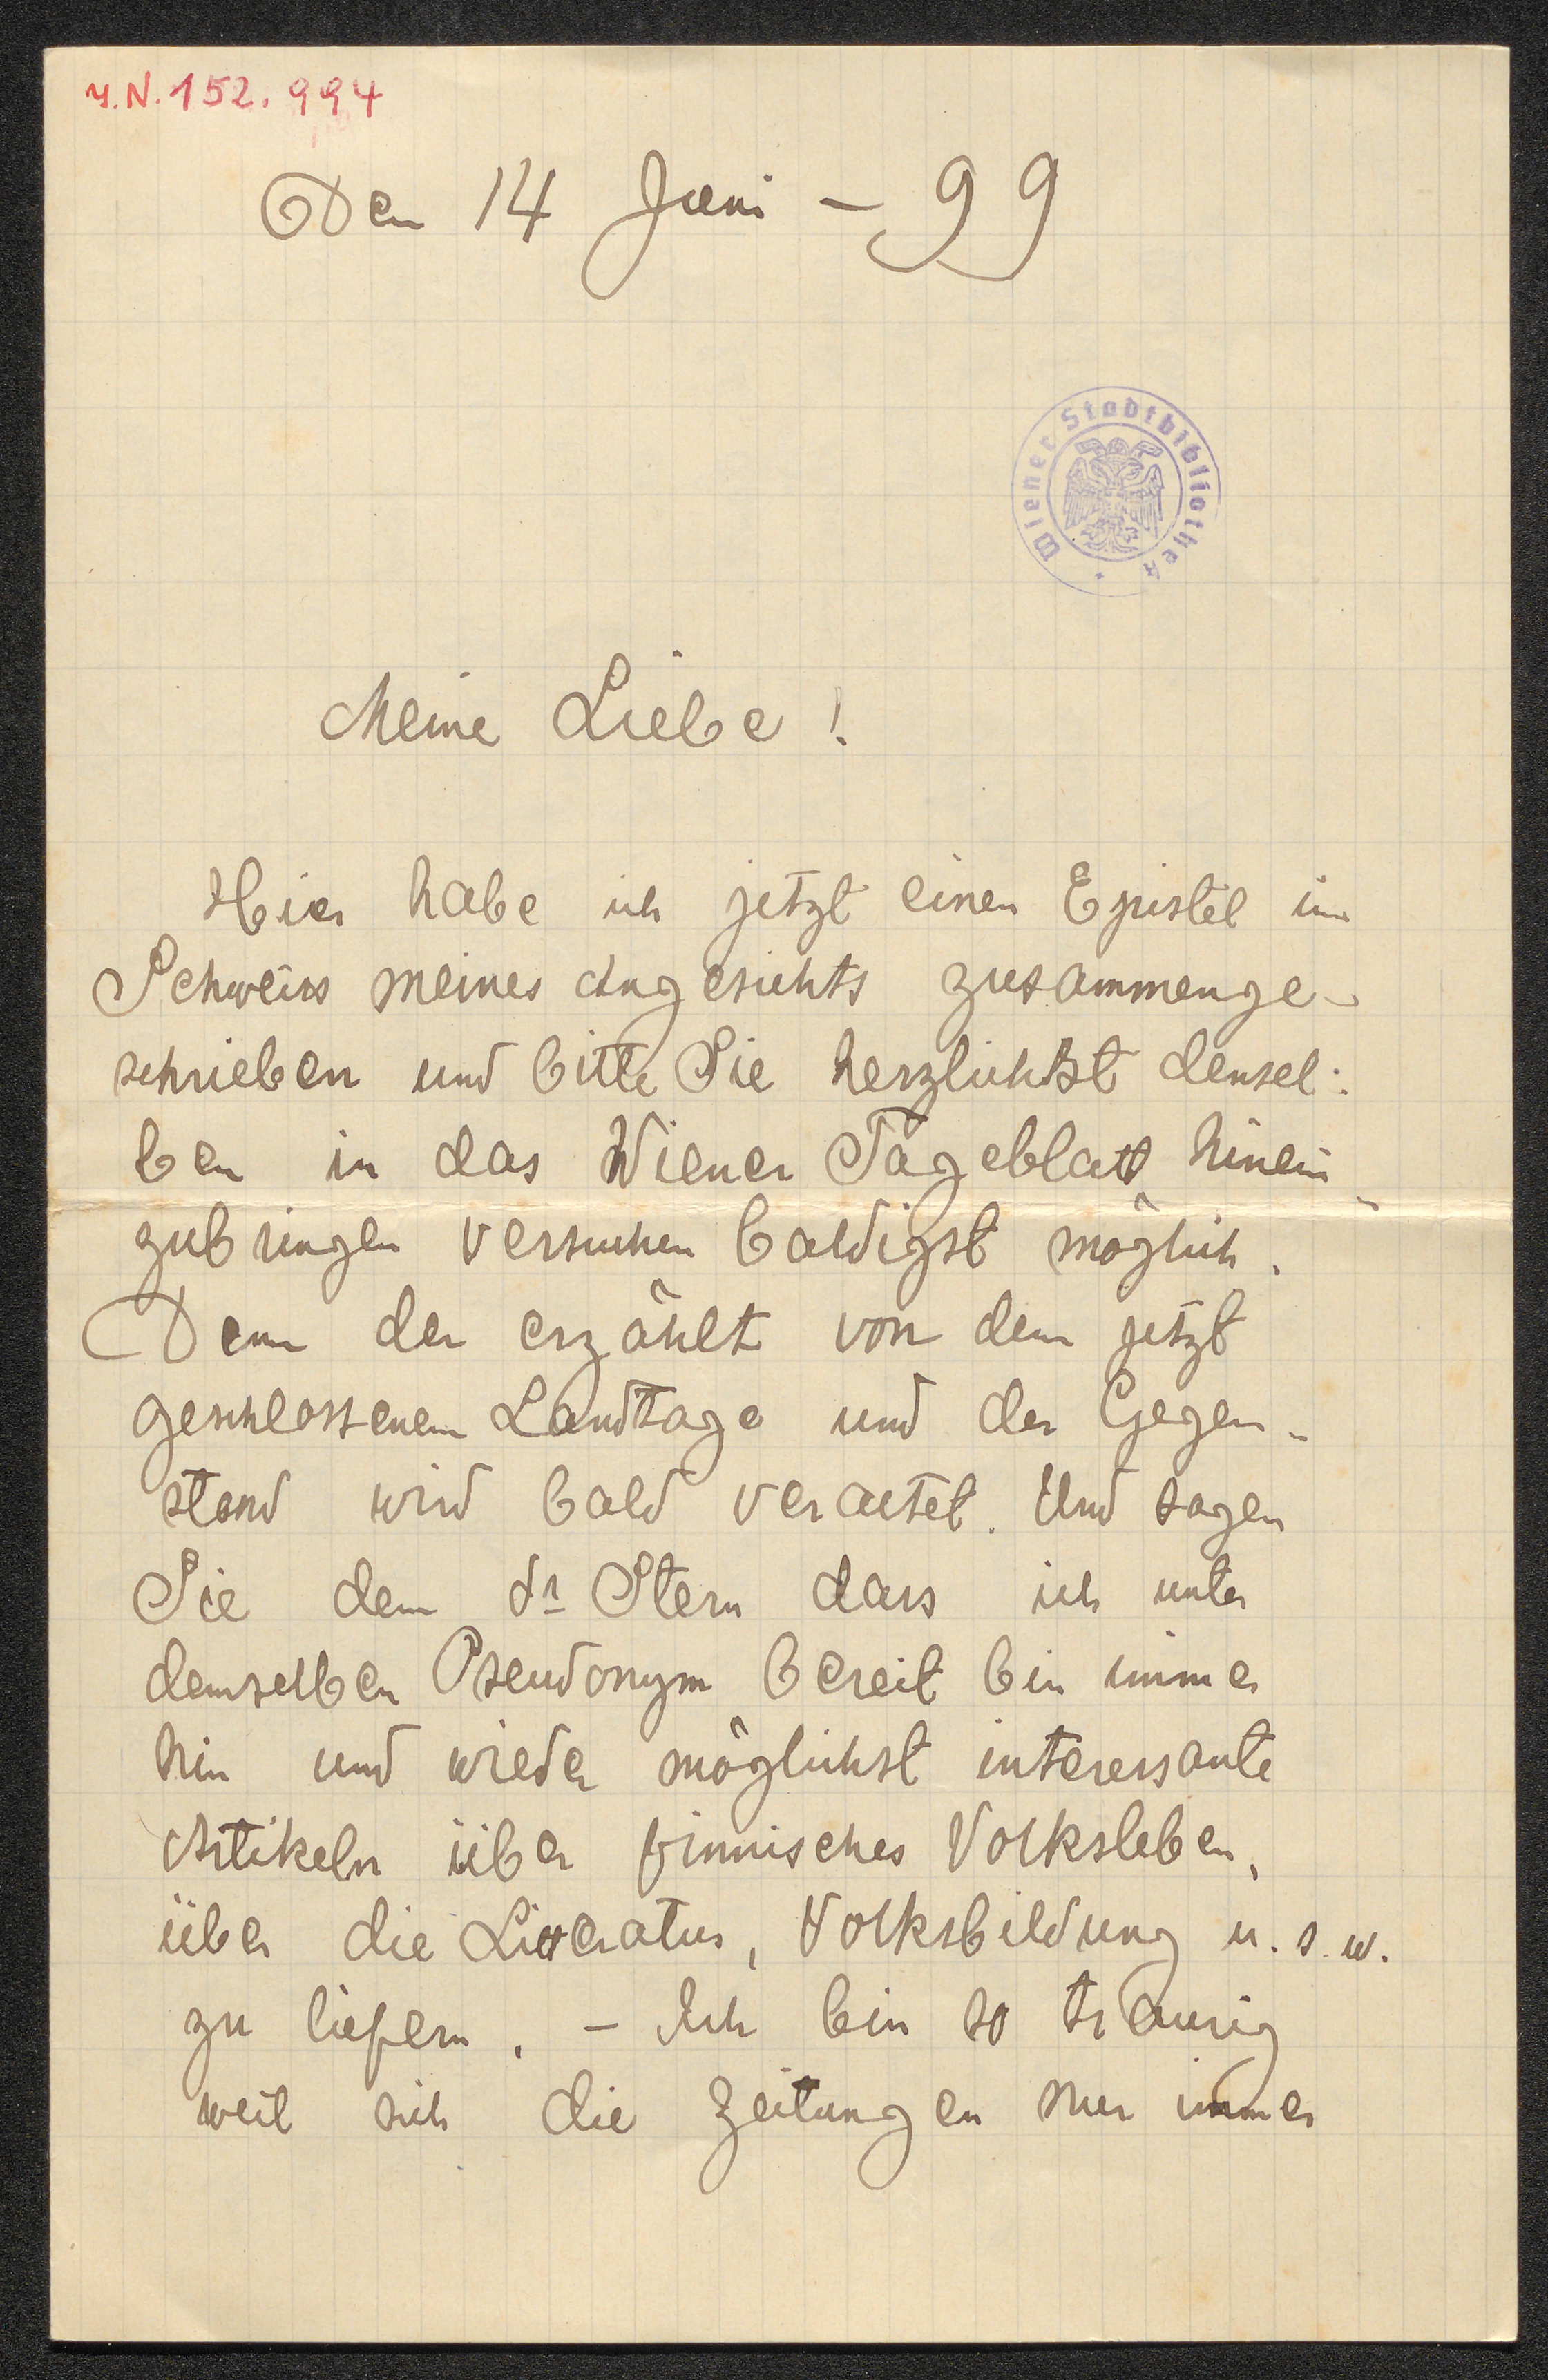 I.N. 152.994
Den 14 Juni - 99
Wiener Stadtbibliothek
Meine Liebe!
Hier habe ich jetzt einen Epistel im
Schweiss meines Angesichts zusammenge-
schrieben und bitte Sie herzlichst densel-
ben in das Wiener Tageblatt hinein
zubringen versuchen baldigst möglich.
Denn der erzählt von dem jetzt
geschlossenem Landtage und der Gegen-
stand wird bald veraltet. Und sagen
Sie dem dr Stern dass ich unter
demselben Pseudonym bereit bin immer
hin und wieder möglichst interessante
Artikeln über finnisches Volksleben,
über die Litteratur, Volksbildung u. s. w.
zu liefern. - Ich bin so traurig
weil sich die Zeitungen nur immer